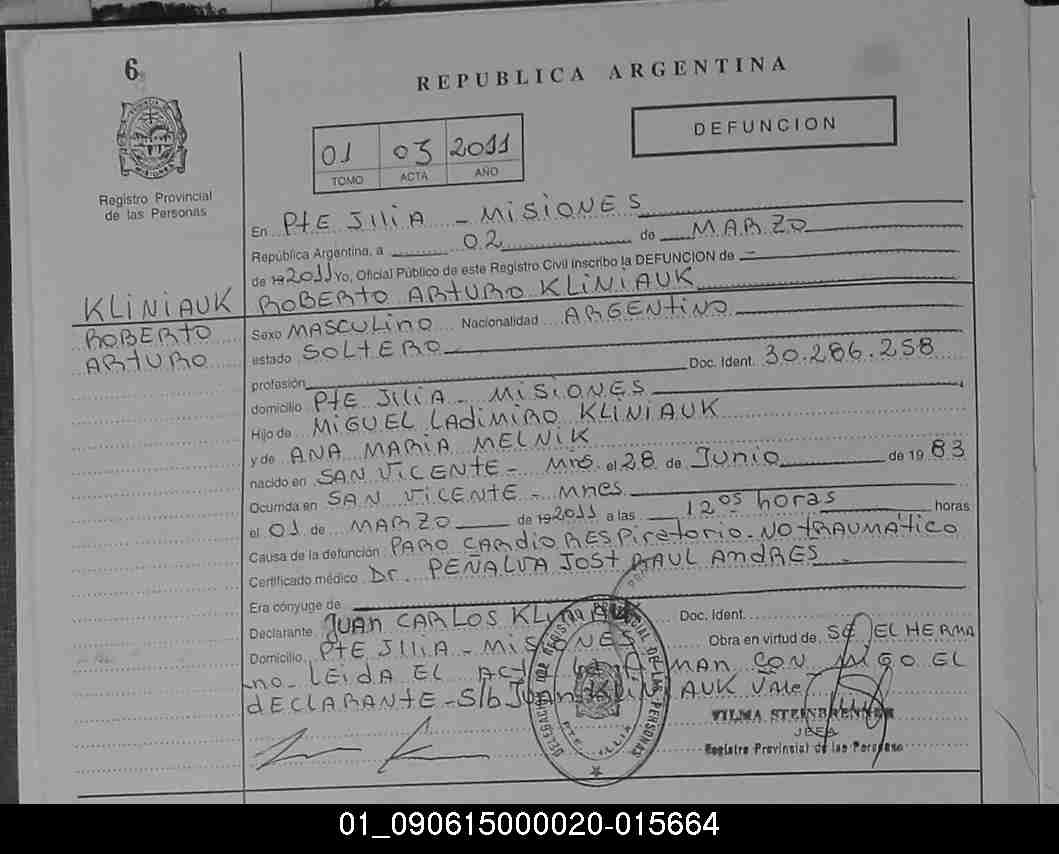 6
REPUBLICA ARGENTINA
Registro Provincial
de las Personas
01 03 2011
TOMO ACTA AÑO
DEFUNCION
En PtE JIliA - MiSiONES
República Argentina, a 02 de MARZO
de 19 2011 Yo, Oficial Público de este Registro Civil inscribo la DEFUNCION de -
KLiNiAUK ROBERTO ARTURO KLINiAUK
ROBERTO
ARTURO
Sexo MASCULiNO Nacionalidad ARGENtiNO
estado SOLTERO
profesión Doc. Ident. 30.286.258
domicilio PtE JIliA - MiSiONES
Hijo de MiGUEL LAdiMiRO KLINiAUK
y de ANA MARiA MELNiK
nacido en SAN ViCENTE - Mns. el 28 de Junio de 19 83
Ocurrida en SAN ViCENtE - Mnes
el 01 de MARZO de 19 2011 a las 12 05 horas horas
Causa de la defunción PARO CARdioRESPiratorio - NO tRAUMÁtico
Certificado médico Dr. PEÑALVA RAUL ANdRES
Era cónyuge de
Declarante JUAN CARLOS KLINIAUK Doc. Ident.
Domicilio PtE JIliA - MiSiONES Obra en virtud de SE EL HERMA
no - LEiDA EL CON MiGO EL
dECLARANTE - S/b JUAN KLINIAUK VALE
VILMA STEINBRENNER
JEFA
Registro Provincial de las Personas
DELEGACION DEL REGISTRO PROVINCIAL DE LAS PERSONAS
01_090615000020-015664